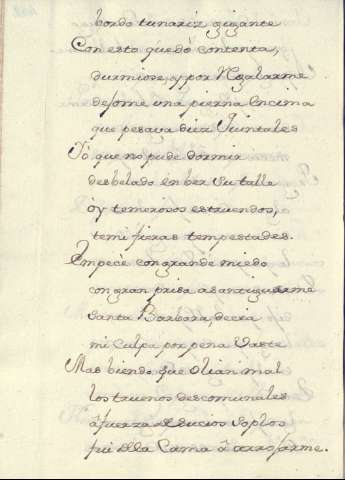 bordo tu nariz gigante
Con esto quedó contenta,
durmiose, y por Regalarme
dejome una pierna Encima
que pesava diez Quintales
Yo que no pude dormir
desbelado en ber su talla
oỳ temerosos estruendos,
temi fieras tempestades.
Empecè con grande miedo
con gran prisa a santiguarme
Santa Barbara, decia
mi culpa por pena vaste
Mas biendo que olian mal
los truenos descomunales
à fuerza de sucios soplos
fui de la Cama à arrojarme.